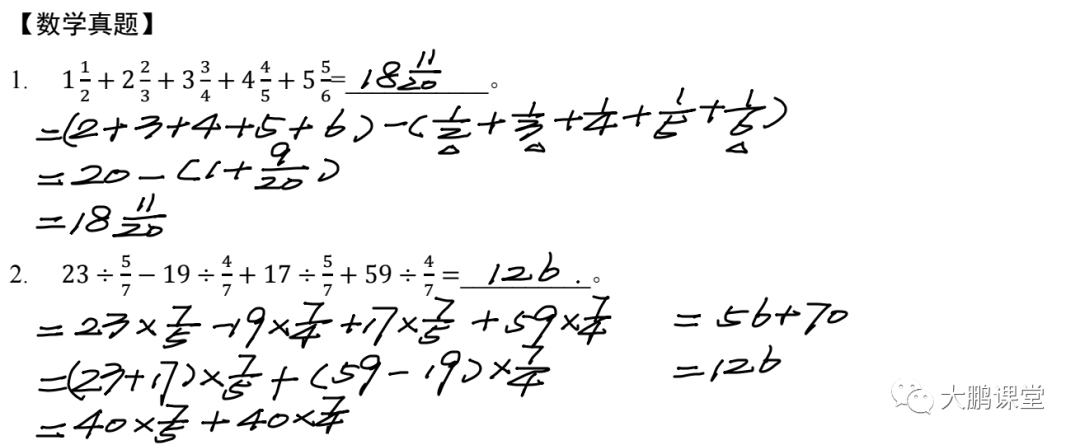 【数学真题】
1. 1 1/2 + 2 2/3 + 3 3/4 + 4 4/5 + 5 5/6 = 18 11/20 。
=(2+3+4+5+6)-(1/2+1/3+1/4+1/5+1/6)
=20-(1+9/20)
=18 11/20
2. 23÷5/7-19÷4/7+17÷5/7+59÷4/7= 126 . 。
=23×7/5-19×7/4+17×7/5+59×7/4
=(23+17)×7/5+(59-19)×7/4
=40×7/5+40×7/4
=56+70
=126
大鹏课堂